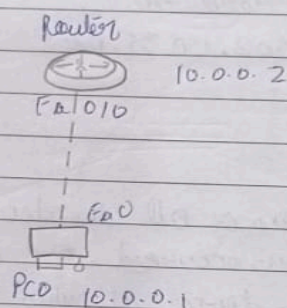 Router
10.0.0.2
Fa/0/0
Fa0
PC0 10.0.0.1